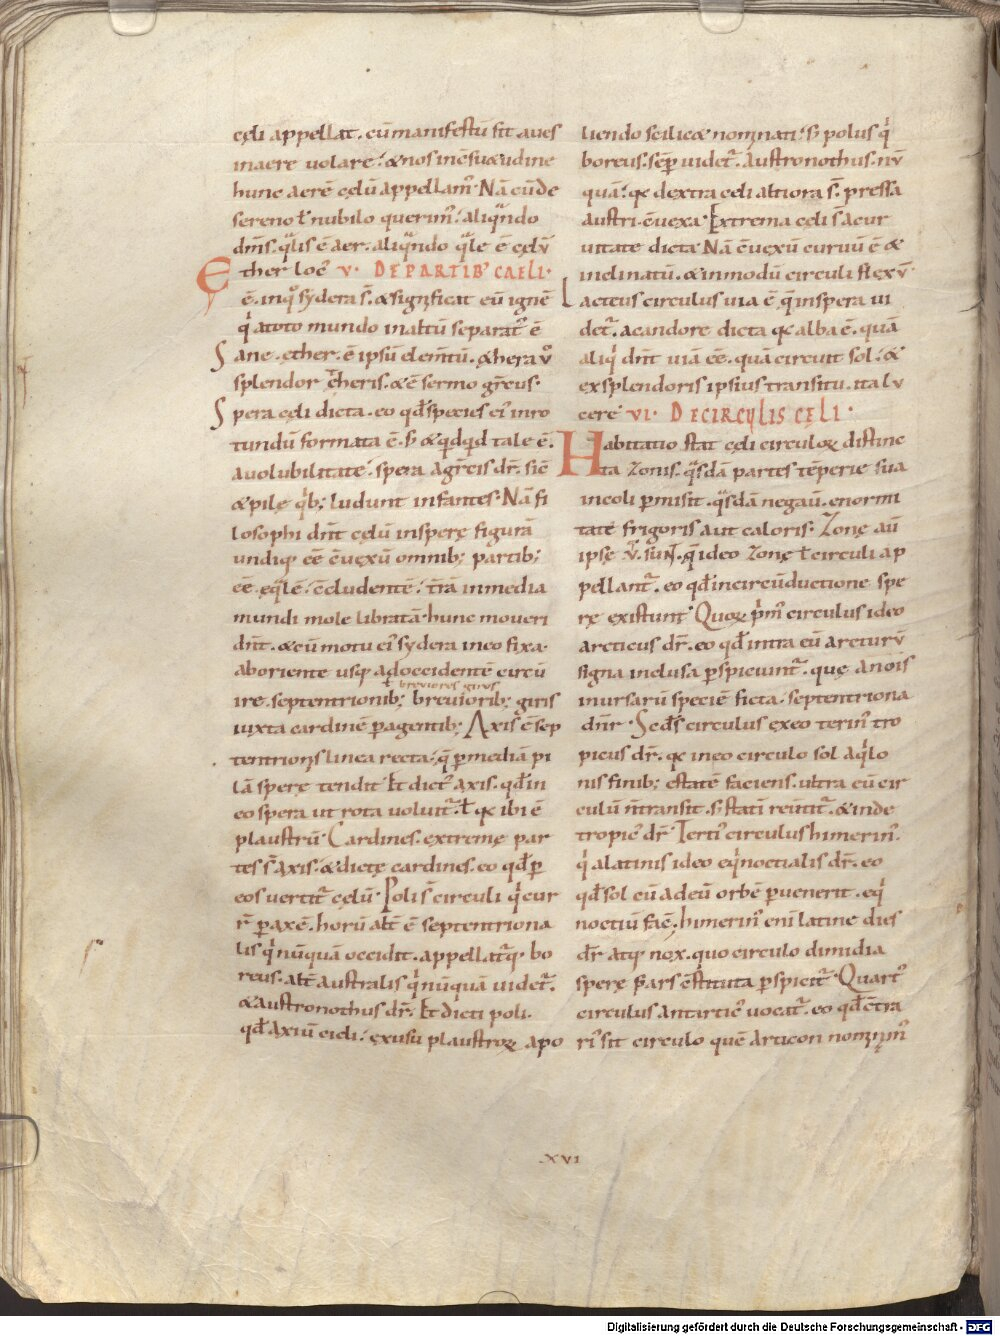 cęli appellat. cū manifestū sit aues
in aere uolare. & nos in c̄suetudine
hunc aerē cęlū appellam᾿. Nā cū de
sereno ł nubilo querim᾿. aliqͣndo
dm̄s. qͣlis ē aer. aliqͣndo qͣle ē cęlū
Ether loc᾿ V. DE PARTIB᾿ CAELI.
ē. in qͦ sydera s̄. & significat eū ignē
qͥ a toto mundo in altū separat᾿ ē
Sane. ether. ē ipsū elem̄tū. ethera ū
splendor ętheris. & ē sermo grecus.
Spera cęli dicta. eo qđ species ei᾿ in ro
tundū formata ē. s; & qͥdqͥd tale ē.
a uolubilitate. spera a grecis dr̄. sic̄
& pilę qͥb; ludunt infantes. Nā fi
losophi dnt̄ cęlū in sperę figurā
undiq; ēē c̄uexū omnib; partib;
ēē. eqͣle. c̄cludentē. t̄rā in media
mundi mole libratā. hunc moueri
dnt̄. & cū motu ei᾿ sydera in eo fixa.
ab oriente usq; ad occidentē circū
ł breuiores giros
ire. septentrionib; breuiorib; giris
iuxta cardinē ꝑagentib; Axis ē sep
tentrionis linea recta. qͥ ꝑ mediā pi
lā sperę tendit. Et dict᾿ axis. qđ in
eo spera ut rota uoluit᾿. ł qͥ ibi ē
plaustrū. Cardines. extremę par
tes s̄ axis. & dictę cardines. eo qđ ꝑ
eos uertit᾿ cęlū. Poli s̄ circuli qͥ cur
r̄ ꝑ axē. horū alt̄ ē septentriona
lis qͥ nūquā occidit. appellat᾿q; bo
reus. alt̄ australis qͥ nūquā uidet᾿.
& austronothus dr̄. Et dicti poli.
qđ axiū cicli. ex usu plaustroꝝ a po
liendo scilic& nominati. s; polus qͥ
boreus. sēꝑ uidet᾿. Austronothus. nū
quā. qͥ dextra celi altiora s̄. pressa
austri. c̄uexa. Extrema cęli s̄ a cur
uitate dicta. Nā c̄uexū curuū ē &
inclinatū. & in modū circuli flexū.
Lacteus circulus uia ē. qͥ in spera ui
det᾿. a candore dicta qͥ alba ē. quā
aliqͥ dnt̄ uiā ēē. quā circuit sol. &
ex splendoris ipsius transitu. ita lu
cere. VI. DE CIRCULIS CĘLI.
Habitatio stat cęli circuloꝝ distinc
ta. Zonis. qͣsdā partes tēperie sua
incoli ꝑmisit. qͣsdā negau. enormi
tate frigoris aut caloris. Zonę aū
ipse .v. sunt. qͥ ideo zonę ł circuli ap
pellant᾿. eo qđ in circūductione spe
rę existunt. Quoꝝ pͥm᾿ circulus ideo
arcticus dr̄. eo qđ intra eū arcturū
signa inclusa ꝑspiciunt᾿. que a nois
in ursarū speciē ficta. septentriona
dn̄r. Scđs circulus ex eo terin᾿ tro
picus dr̄. qͥ in eo circulo sol aqͥlo
nis finib; estatē faciens. ultra eū cir
culū n̄ transit. s; statī reūtit᾿. & inde
tropic᾿ dr̄. Terti᾿ circulus himerin᾿.
qͥ a latinis ideo eqͥnoctialis dr̄. eo
qđ sol cū ad eū orbē ꝑuenerit. eqͥ
noctiū fac̄. himerin᾿ eni latine dies
dr̄ atq; nox. quo circulo dimidia
sperę pars c̄stituta ꝑspicit᾿. Quart᾿
circulus antartic᾿ uocat᾿. eo qđ c̄tra
ri᾿ sit circulo quē articon nominam᾿
.XVI
Digitalisierung gefördert durch die Deutsche Forschungsgemeinschaft - DFG